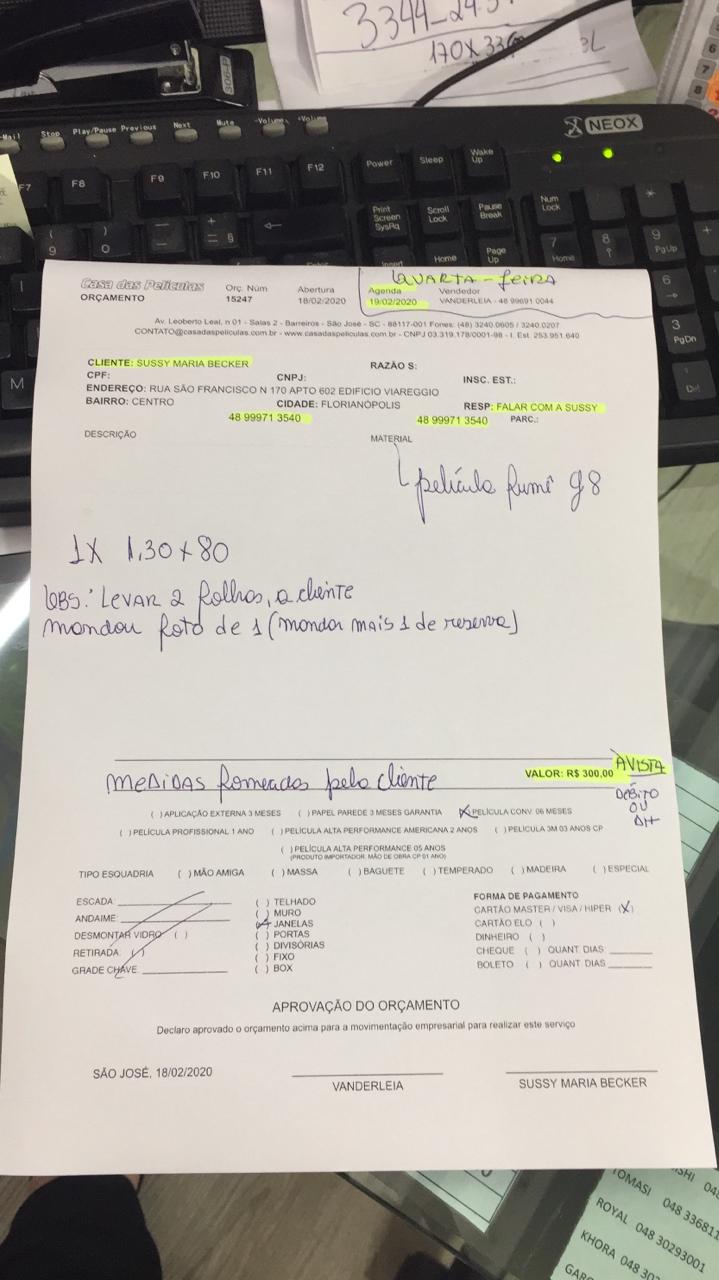 3344-24
170X336
306-P
Mail Stop Play/Pause Previous Next Mute -Volume +Volume
NEOX
F7 F8 F9 F10 F11 F12 Power Sleep Wake Up
Print Screen SysRq Scroll Lock Pause Break Num Lock
Insert Home Page Up 7 Home 8 9 PgUp
6
3 PgDn
M
QUARTA-feira
Casa das Películas Orç. Núm Abertura Agenda Vendedor
ORÇAMENTO 15247 18/02/2020 19/02/2020 VANDERLEIA - 48 99691 0044
Av. Leoberto Leal, n 01 - Salas 2 - Barreiros - São José - SC - 88117-001 Fones: (48) 3240.0605 / 3240.0207
CONTATO@casadaspeliculas.com.br - www.casadaspeliculas.com.br - CNPJ 03.319.178/0001-98 - I. Est. 253.951.640
CLIENTE: SUSSY MARIA BECKER RAZÃO S:
CPF: CNPJ: INSC. EST.:
ENDEREÇO: RUA SÃO FRANCISCO N 170 APTO 602 EDIFICIO VIAREGGIO
BAIRRO: CENTRO CIDADE: FLORIANÓPOLIS RESP: FALAR COM A SUSSY
48 99971 3540 48 99971 3540 PARC.:
DESCRIÇÃO MATERIAL
película fumê g8
1X 1,30x80
OBS: LEVAR 2 folhas, a cliente
mandou foto de 1 (mandar mais 1 de reserva)
AVISTA
MEDIDAS fornecidas pelo cliente VALOR: R$ 300,00
DÉBITO
OU
DH
( ) APLICAÇÃO EXTERNA 3 MESES ( ) PAPEL PAREDE 3 MESES GARANTIA (X) PELÍCULA CONV. 06 MESES
( ) PELÍCULA PROFISSIONAL 1 ANO ( ) PELÍCULA ALTA PERFORMANCE AMERICANA 2 ANOS ( ) PELICULA 3M 03 ANOS CP
( ) PELÍCULA ALTA PERFORMANCE 05 ANOS
(PRODUTO IMPORTADOR. MÃO DE OBRA CP 01 ANO)
TIPO ESQUADRIA ( ) MÃO AMIGA ( ) MASSA ( ) BAGUETE ( ) TEMPERADO ( ) MADEIRA ( ) ESPECIAL
ESCADA: ( ) TELHADO FORMA DE PAGAMENTO
ANDAIME: ( ) MURO CARTÃO MASTER / VISA / HIPER (X)
(X) JANELAS CARTÃO ELO ( )
DESMONTAR VIDRO ( ) ( ) PORTAS DINHEIRO ( )
RETIRADA: ( ) ( ) DIVISÓRIAS CHEQUE ( ) QUANT DIAS:
( ) FIXO BOLETO ( ) QUANT DIAS
GRADE CHAVE ( ) BOX
APROVAÇÃO DO ORÇAMENTO
Declaro aprovado o orçamento acima para a movimentação empresarial para realizar este serviço
SÃO JOSÉ, 18/02/2020
VANDERLEIA SUSSY MARIA BECKER
ISHI 048
TOMASI 048 336811
ROYAL 048 30293001
KHORA 048